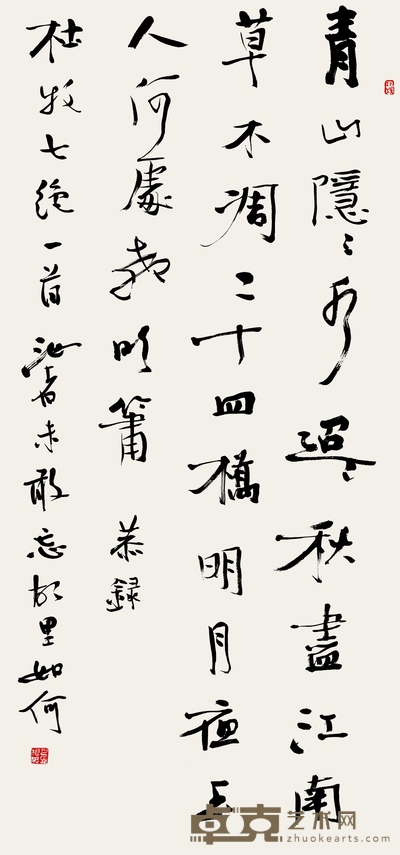 青山隱〻水迢〻秋盡江南
草木凋二十四橋明月夜玉
人何處教吹簫 恭錄
杜牧七絕一首 未敢忘故里如何
卓克艺术网
zhuokearts.com